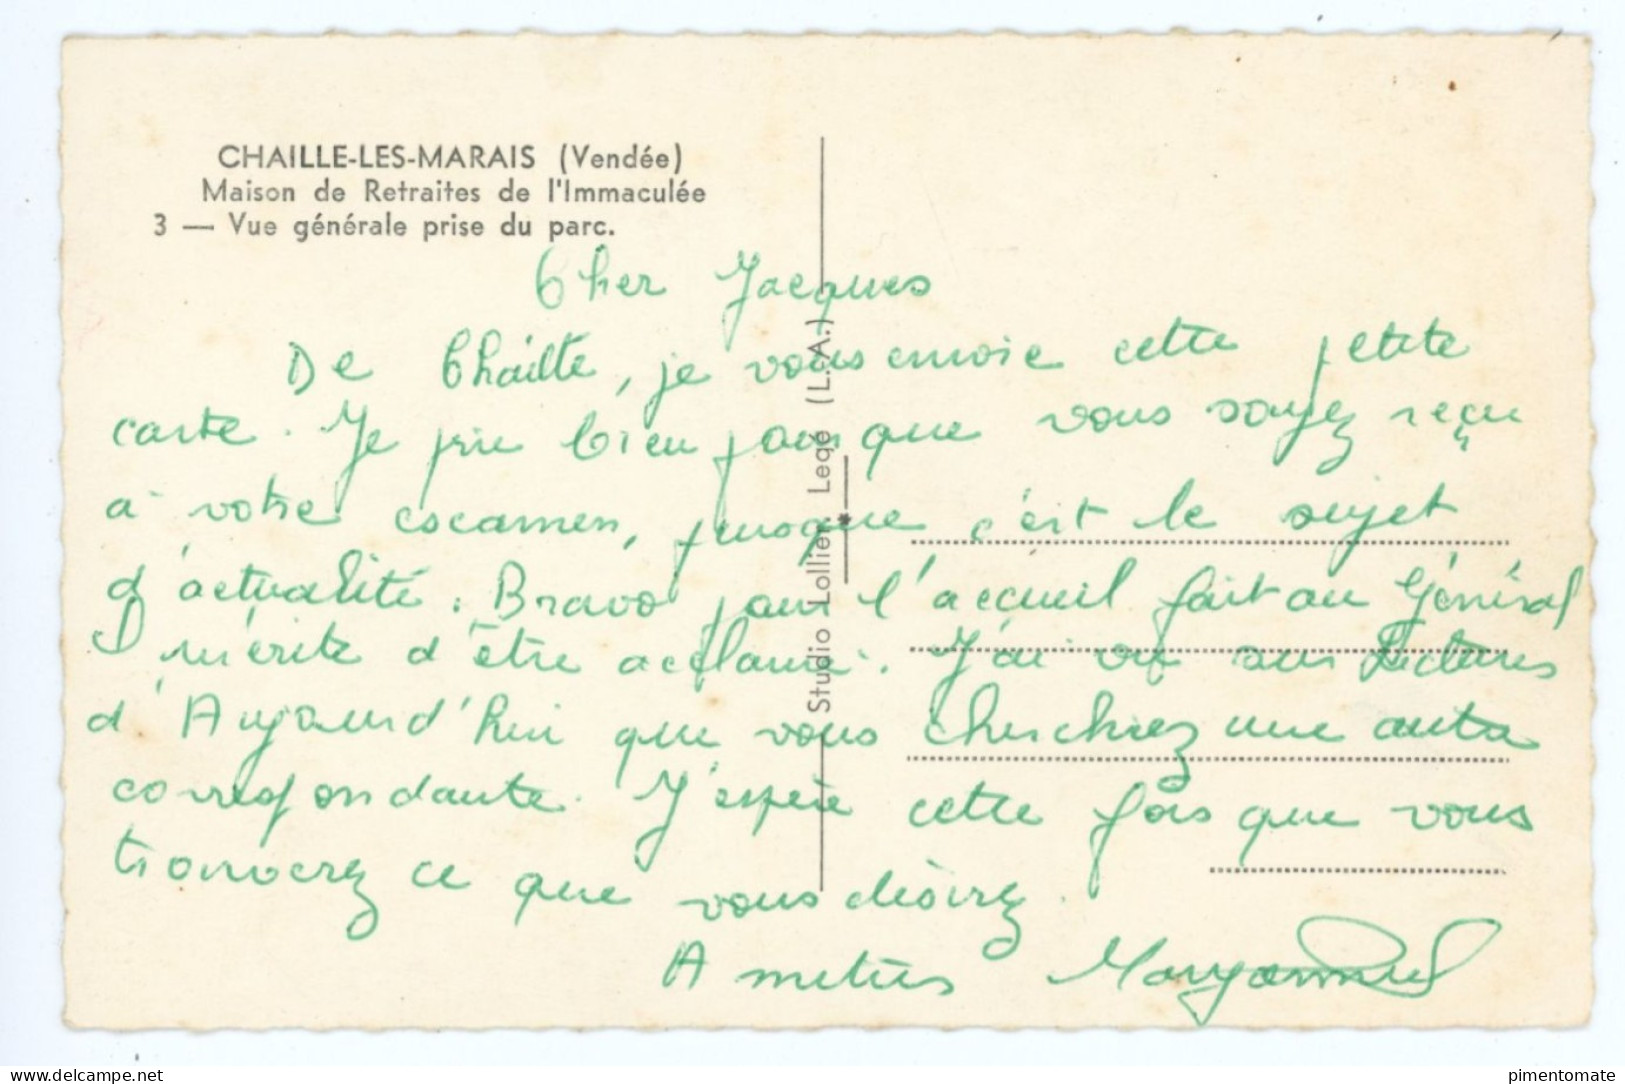 CHAILLE-LES-MARAIS (Vendée)
Maison de Retraites de l'Immaculée
3 — Vue générale prise du parc.
Cher Jacques
De Chaillé, je vous envoie cette petite
carte. Je prie bien pour que vous soyez reçu
à votre examen, puisque c'est le sujet
d'actualité. Bravo pour l'accueil fait au Général
Il mérite d'être acclamé. J'ai vu sur Lectures
d'Aujourd'hui que vous cherchiez une autre
correspondante. J'espère cette fois que vous
trouverez ce que vous désirez.
Amitiés Maryannick
Studio Lollier Legé (L.-A.)
www.delcampe.net
pimentomate